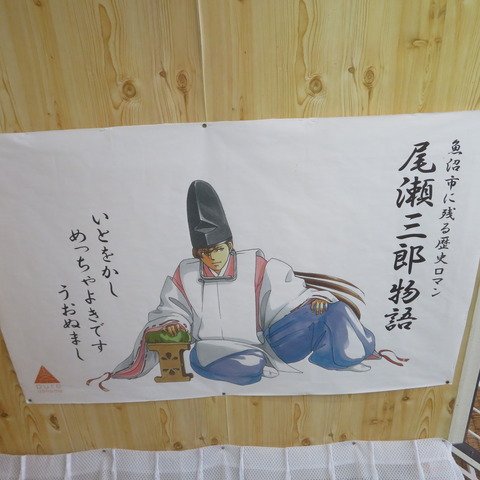 魚沼市に残る歴史ロマン
尾瀬三郎物語
いとをかし
めっちゃよきです
うおぬまし